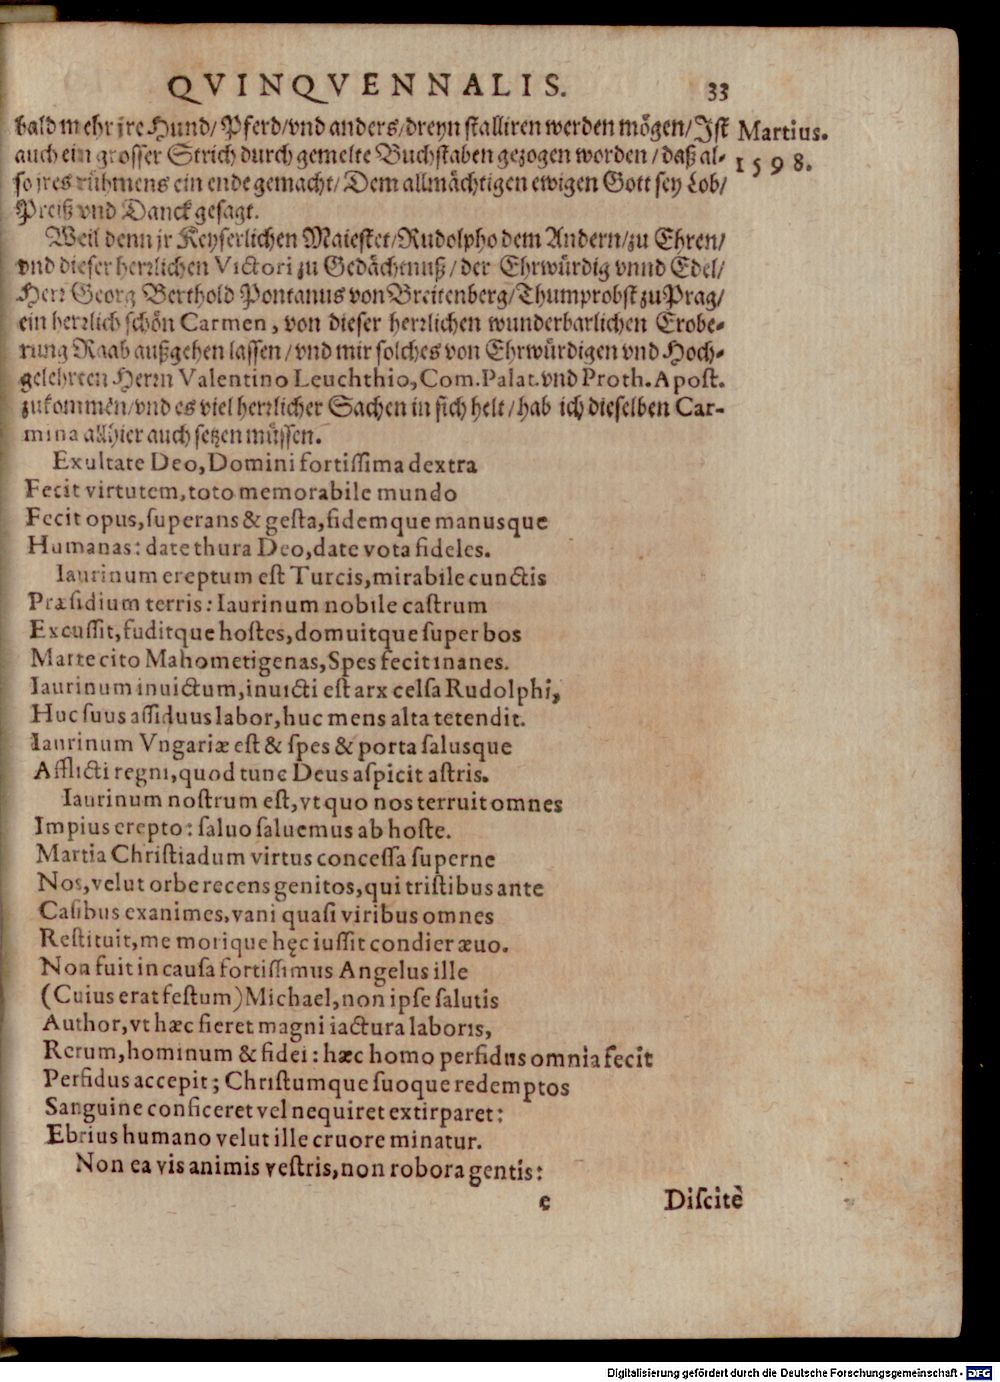 QVINQVENNALIS. 33
bald mehr jre Hund/ Pferd/ vnd anders/ dreyn stalliren werden mögen/ Jst
Martius.
1598.
auch ein grosser Strich durch gemelte Buchstaben gezogen worden/ daß al-
so jres rühmens ein ende gemacht/ Dem allmächtigen ewigen Gott sey Lob/
Preiß vnd Danck gesagt.
Weil denn jr Keyserlichen Maiestet/ Rudolpho dem Andern/ zu Ehren/
vnd dieser herrlichen Victori zu Gedächtnuß/ der Ehrwürdig vnnd Edel/
Herr Georg Berthold Pontanus von Breitenberg/ Thumprobst zu Prag/
ein herrlich schön Carmen, von dieser herrlichen wunderbarlichen Erobe-
rung Raab außgehen lassen/ vnd mir solches von Ehrwürdigen vnd Hoch-
gelehrten Herrn Valentino Leuchthio, Com. Palat. vnd Proth. Apost.
zukommen/ vnd es viel herrlicher Sachen in sich helt/ hab ich dieselben Car-
mina allhier auch setzen müssen.
Exultate Deo, Domini fortiſſima dextra
Fecit virtutem, toto memorabile mundo
Fecit opus, ſuperans & geſta, fidemque manusque
Humanas: date thura Deo, date vota fideles.
Iaurinum ereptum eſt Turcis, mirabile cunctis
Præſidium terris: Iaurinum nobile caſtrum
Excuſſit, fuditque hoſtes, domuitque ſuperbos
Marte cito Mahometigenas, Spes fecit inanes.
Iaurinum inuictum, inuicti eſt arx celſa Rudolphi,
Huc ſuus aſſiduus labor, huc mens alta tetendit.
Iaurinum Vngariæ eſt & ſpes & porta ſalusque
Afflicti regni, quod tunc Deus aſpicit aſtris.
Iaurinum noſtrum eſt, vt quo nos terruit omnes
Impius erepto: ſaluo ſaluemus ab hoſte.
Martia Chriſtiadum virtus conceſſa ſuperne
Nos, velut orbe recens genitos, qui triſtibus ante
Caſibus exanimes, vani quaſi viribus omnes
Reſtituit, me morique hęc iuſſit condier æuo.
Non fuit in cauſa fortiſſimus Angelus ille
(Cuius erat feſtum) Michael, non ipſe ſalutis
Author, vt hæc fieret magni iactura laboris,
Rerum, hominum & fidei: hæc homo perfidus omnia fecit
Perfidus accepit; Chriſtumque ſuoque redemptos
Sanguine conficeret vel nequiret extirparet:
Ebrius humano velut ille cruore minatur.
Non ea vis animis veſtris, non robora gentis:
e Diſcitè
Digitalisierung gefördert durch die Deutsche Forschungsgemeinschaft - DFG